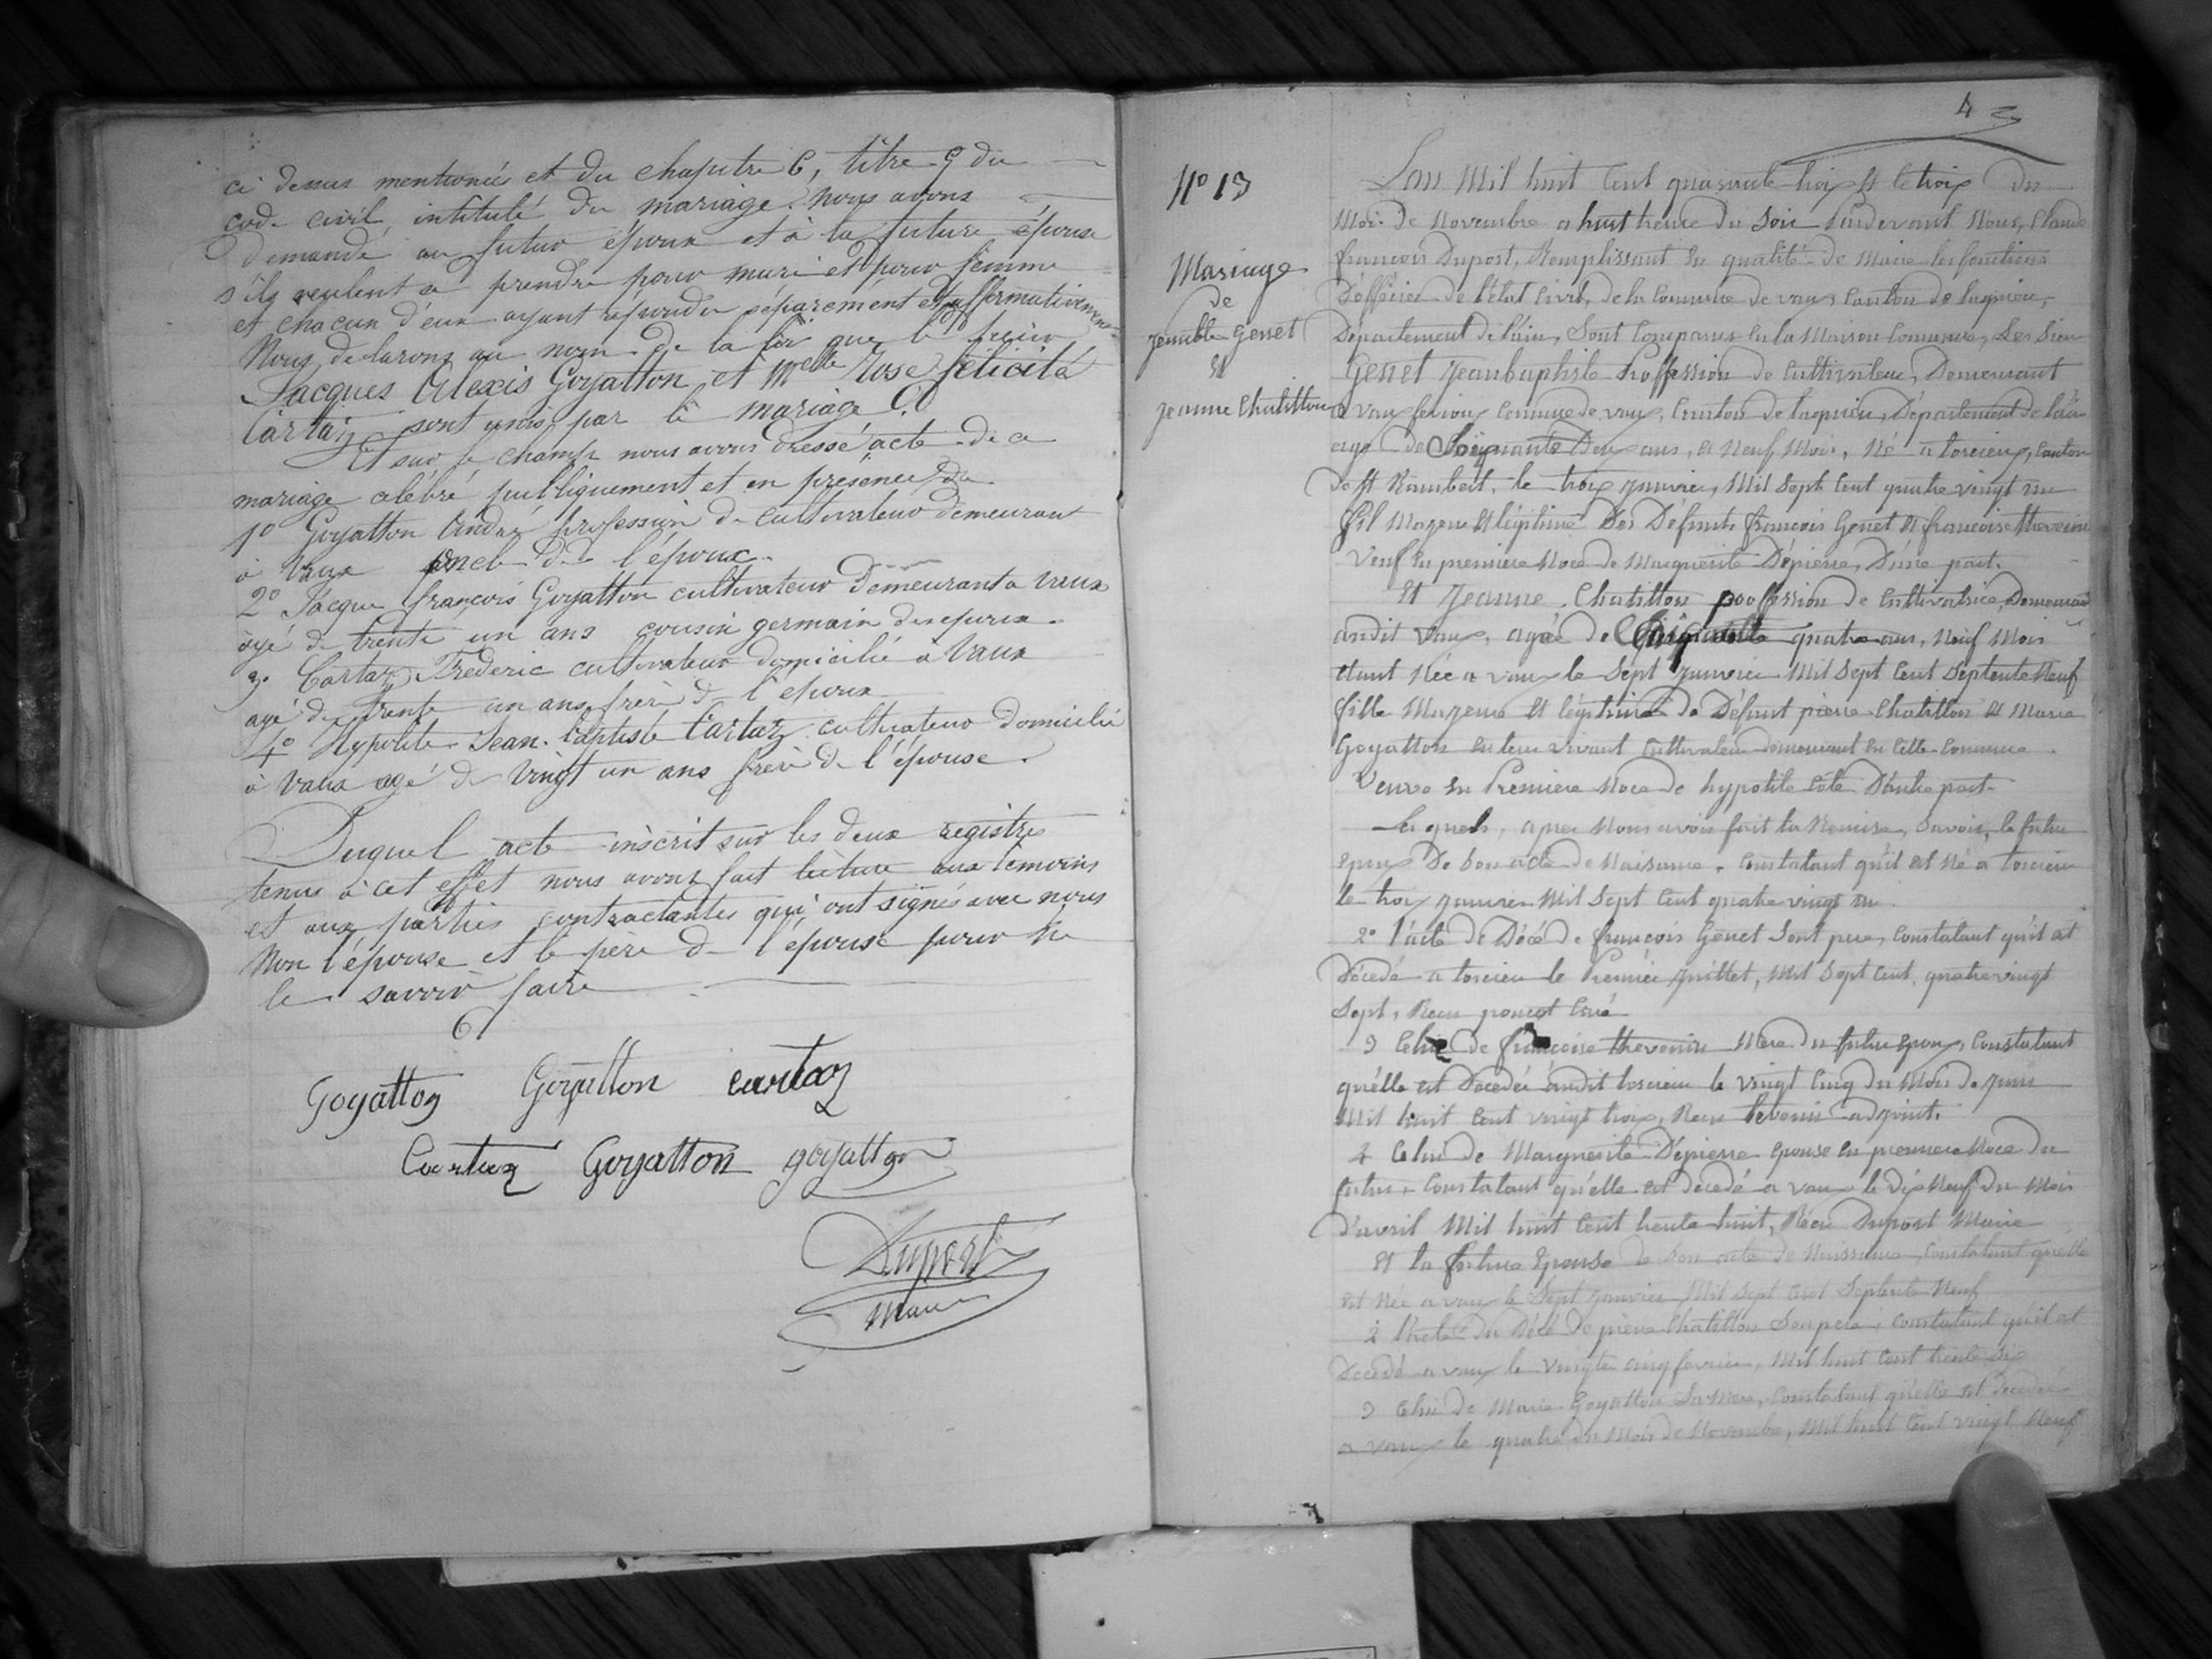 ci dessus mentionnée et du chapitre 6, titre 5 du
code civil, intitulé du mariage. nous avons
demandé au futur époux et à la future épouse
s'ils veulent se prendre pour mari et pour femme
et chacun d'eux ayant répondu séparement et affirmativement
Nous declarons au nom de la loi que le sieur
Jacques Alexis Goyatton et Melle Rose félicité
Cartaz sont unis par le mariage.
Et sur le champ nous avons dressé acte de ce
mariage célébré publiquement et en présence de
1º Goyatton André profession de cultivateur demeurant
à Vaux oncle de l'époux.
2º Jacque françois Goyatton cultivateur demeurant a Vaux
agé de trente un ans cousin germain de
3º Cartaz Frederic cultivateur domicilié à Vaux
agé de trente un ans frère de l'époux
4º Hypolite Jean-baptiste Cartaz cultivateur domicilié
à Vaux agé de Vingt un ans frère de l'épouse.
Duquel acte inscrit sur les deux registres
tenus à cet effet nous avons fait lecture aux témoins
et aux parties contractantes qui ont signés avec nous
Non l'épouse et le père de l'épouse pour ne
le savoir faire
Goyatton Goyatton cartaz
Cartaz Goyatton goyatton
Duport
Maire
4
Nº 13
Mariage
de
Jeanbte Genet
Et
Jeanne Chatillon
Lan Mil huit Cent quarante trois Et le trois du
Mois de Novembre a huit heure du Soir Pardevant Nous, Claude
francois Duport, Remplissant En qualité de Maire les fonctions
D'officier de l'état Civil, de la Commune de vaux Canton de lagnieu,
Département de l'ain, Sont Comparus En la Maison Commune, Les Sieur
Genet Jeanbaptiste Proffession de Cultivateur, Demeurant
a vaux fevroux Commune de vaux, Canton de lagnieu, Département de l'ain
agé de Soixante Deux ans, et Neuf Mois, Né a torcieux, Canton
De St Rambert, le trois Janvier, Mil Sept Cent quatre vingt un
fil Mageur Et légitime Des Défunts françois Genet Et francoise thevenin
Veuf En premiere Noce de Marguerite Dépierre, D'une part.
Et Jeanne Chatillon proffession de Cultivatrice, Demeurant
audit Vaux, agée de Cinquante quatre ans, Neuf Mois
Etant Née a vaux le Sept Janvier Mil Sept Cent Septente Neuf
fille Mageure Et légitime de Défunt pierre Chatillon Et Marie
Goyatton En leur vivant Cultivateur demeurant En Cette Commune.
Veuve En Premiere Noce de hypolite Cote D'autre part.
Les quels, apres Nous avoir fait la Remise, Savoir, le futur
Epoux De Son acte de Naissance. Constatant qu'il est Né a torcieu
le trois Janvier Mil Sept Cent quatre vingt un.
2º l'acte de Décé de françois Genet Sont pere, Constatant qu'il est
Décedé a torcieu le Premier Juillet, Mil Sept Cent, quatre vingt
Sept, Recu poncet Curé
3 Celui de francoise thevenin Mere du futur Epoux, Constatant
qu'elle est Decedée audit torcieu le vingt Cinq du Mois de Juin
Mil huit Cent vingt trois, Recu tevenin adjoint.
4 Celui de Marguerite Dépierre Epouse En premiere Noce du
futur, Constatant qu'elle est decedé a vaux le Dix Neuf du Mois
D'avril Mil huit Cent trente huit, Récu Duport Maire
Et la future Epouse de Son acte de Naissance, Constatant qu'elle
est Née a vaux le Sept Janvier Mil Sept Cent Septente Neuf
2 l'acte du Décé de pierre Chatillon Son pere, Constatant qu'il est
Décedé a vaux le vingte cinq fevrier, Mil huit Cent trente Six
3 Celui de Marie Goyatton Sa Mere, Constatant qu'elle est decedée
a vaux le quatre du Mois de Novembre, Mil huit Cent vingt Neuf